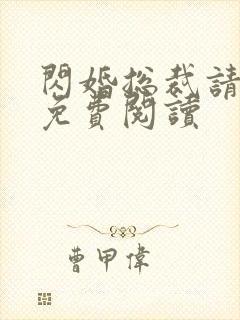 閃婚總裁請
免費閱讀
曹甲偉